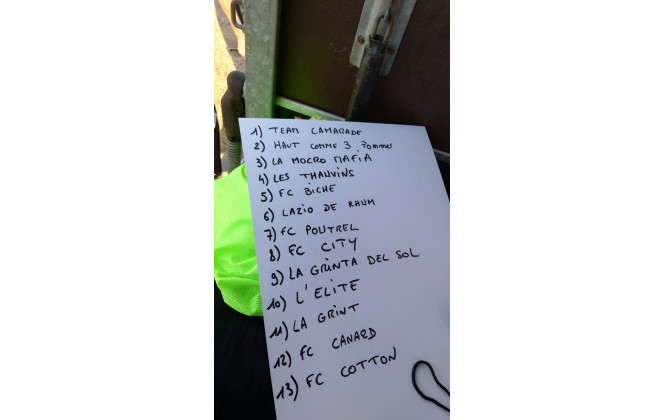 1) TEAM CAMARADE
2) HAUT COMME 3 Pommes
3) LA MOCRO MAFIA
4) LES THAUVINS
5) FC BICHE
6) LAZIO DE RHUM
7) FC POUTREL
8) FC CITY
9) LA GRINTA DEL SOL
10) L'ELITE
11) LA GRINT
12) FC CANARD
13) FC COTTON